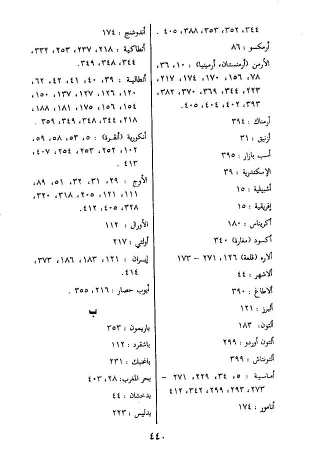 ٣٤٤، ٣٥٢، ٣٥٣، ٣٨٨، ٤٠٥ .
أرمكسو : ٨٦
الأرمن (أرمنستان، أرمينيا) : ١٠، ٣٦،
٧٨، ١٥٦، ١٧٠، ١٧٤، ٢١٧،
٢٢٣، ٣٤٤، ٣٦٩، ٣٧٠، ٣٨٢،
٣٩٣، ٤٠٢، ٤٠٤، ٤٠٥ .
أرمناك : ٣٩٤
أزنيق : ٣١
أسب بازار : ٣٩٥
الإسكندرية : ٣٩
أشبيلية : ١٥
إفريقية : ١٥
أكريناس : ١٨٠
أكسود (مغارة) ٣٤٠
ألاره (قلعة) ١٢٦، ٢٧١ - ١٧٣
ألاشهر : ٤٤
ألاطاغ : ٣٩٠
ألبرز : ١٢١
ألتون: ١٨٣
ألتون أوردو : ٢٩٩
ألتونتاش : ٣٩٩
أماسية : ٥، ٣٤، ٢٢٩، ٢٧١ -
٢٧٣، ٢٩٣، ٢٩٩، ٣٤٢، ٤١٢
أنامور : ١٧٤
أندوشنج : ١٧٤
أنطاكية : ٢١٨، ٢٣٧، ٢٥٣، ٣٣٢،
٣٤٤، ٣٤٨، ٣٤٩ .
أنطالية : ٣٩، ٤٠، ٤١، ٤٢، ٦٢،
١٢٠، ١٢٦، ١٢٧، ١٣٧، ١٥٠،
١٥٤، ١٥٦، ١٧٥، ١٨١، ١٨٨،
٢١٨، ٣٤٤، ٣٤٨، ٣٤٩، ٣٥٩ .
أنكورية (أنقرة) : ٥، ٥٣، ٥٨، ٥٩،
١٠٢، ٢٥٢، ٢٥٣، ٢٥٤، ٤٠٧،
٤١٣ .
الأوج : ٢٩، ٣١، ٣٢، ٥١، ٨٩،
١١١، ١٢١، ٢٠٥، ٣١٨، ٣٢٠،
٣٢٨، ٤٠٥، ٤١٢ .
الأورال : ١١٢
أولتي : ٢١٧
إيسران : ١٢١، ١٨٣، ١٨٦، ٣٧٣،
٤١٤ .
أيوب حصار : ٢١٦، ٣٥٥ .
ب
باريمون : ٣٥٣
باشقرد : ١١٢
باغنيك : ٢٣١
بحر المغرب: ٢٨، ٤٠٣
بدخشان : ٤٤
بدليس : ٢٢٣
٤٤٠